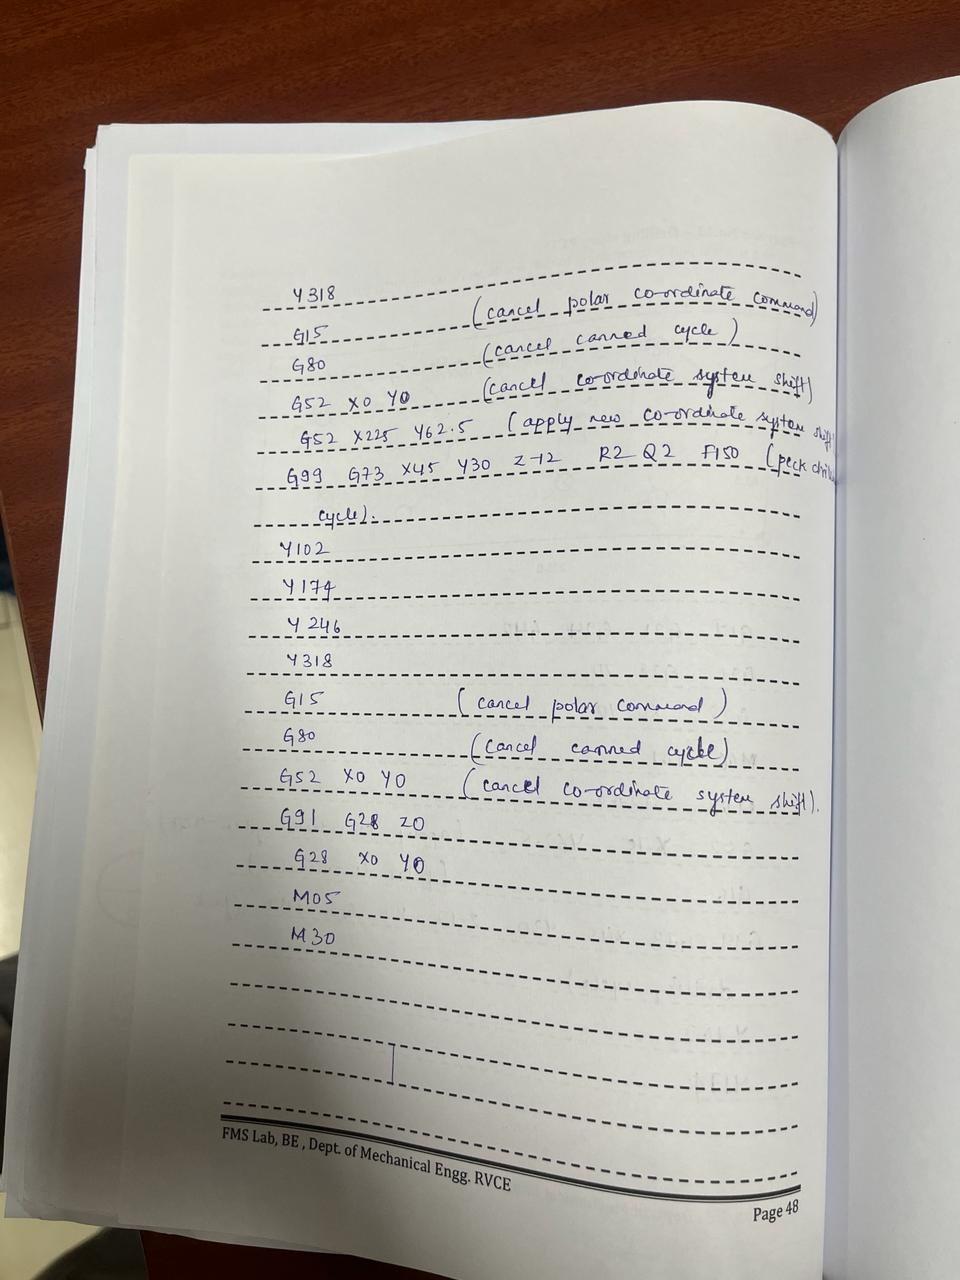 Y318
G15 (cancel polar co-ordinate command)
G80 (cancel canned cycle)
G52 X0 Y0 (cancel co-ordinate system shift)
G52 X225 Y62.5 (apply new co-ordinate system shift
G99 G73 X45 Y30 Z-12 R2 Q2 F150 (peck drill
cycle).
Y102
Y174
Y246
Y318
G15 (cancel polar command)
G80 (cancel canned cycle)
G52 X0 Y0 (cancel co-ordinate system shift).
G91 G28 Z0
G28 X0 Y0
M05
M30
FMS Lab, BE , Dept. of Mechanical Engg. RVCE
Page 48